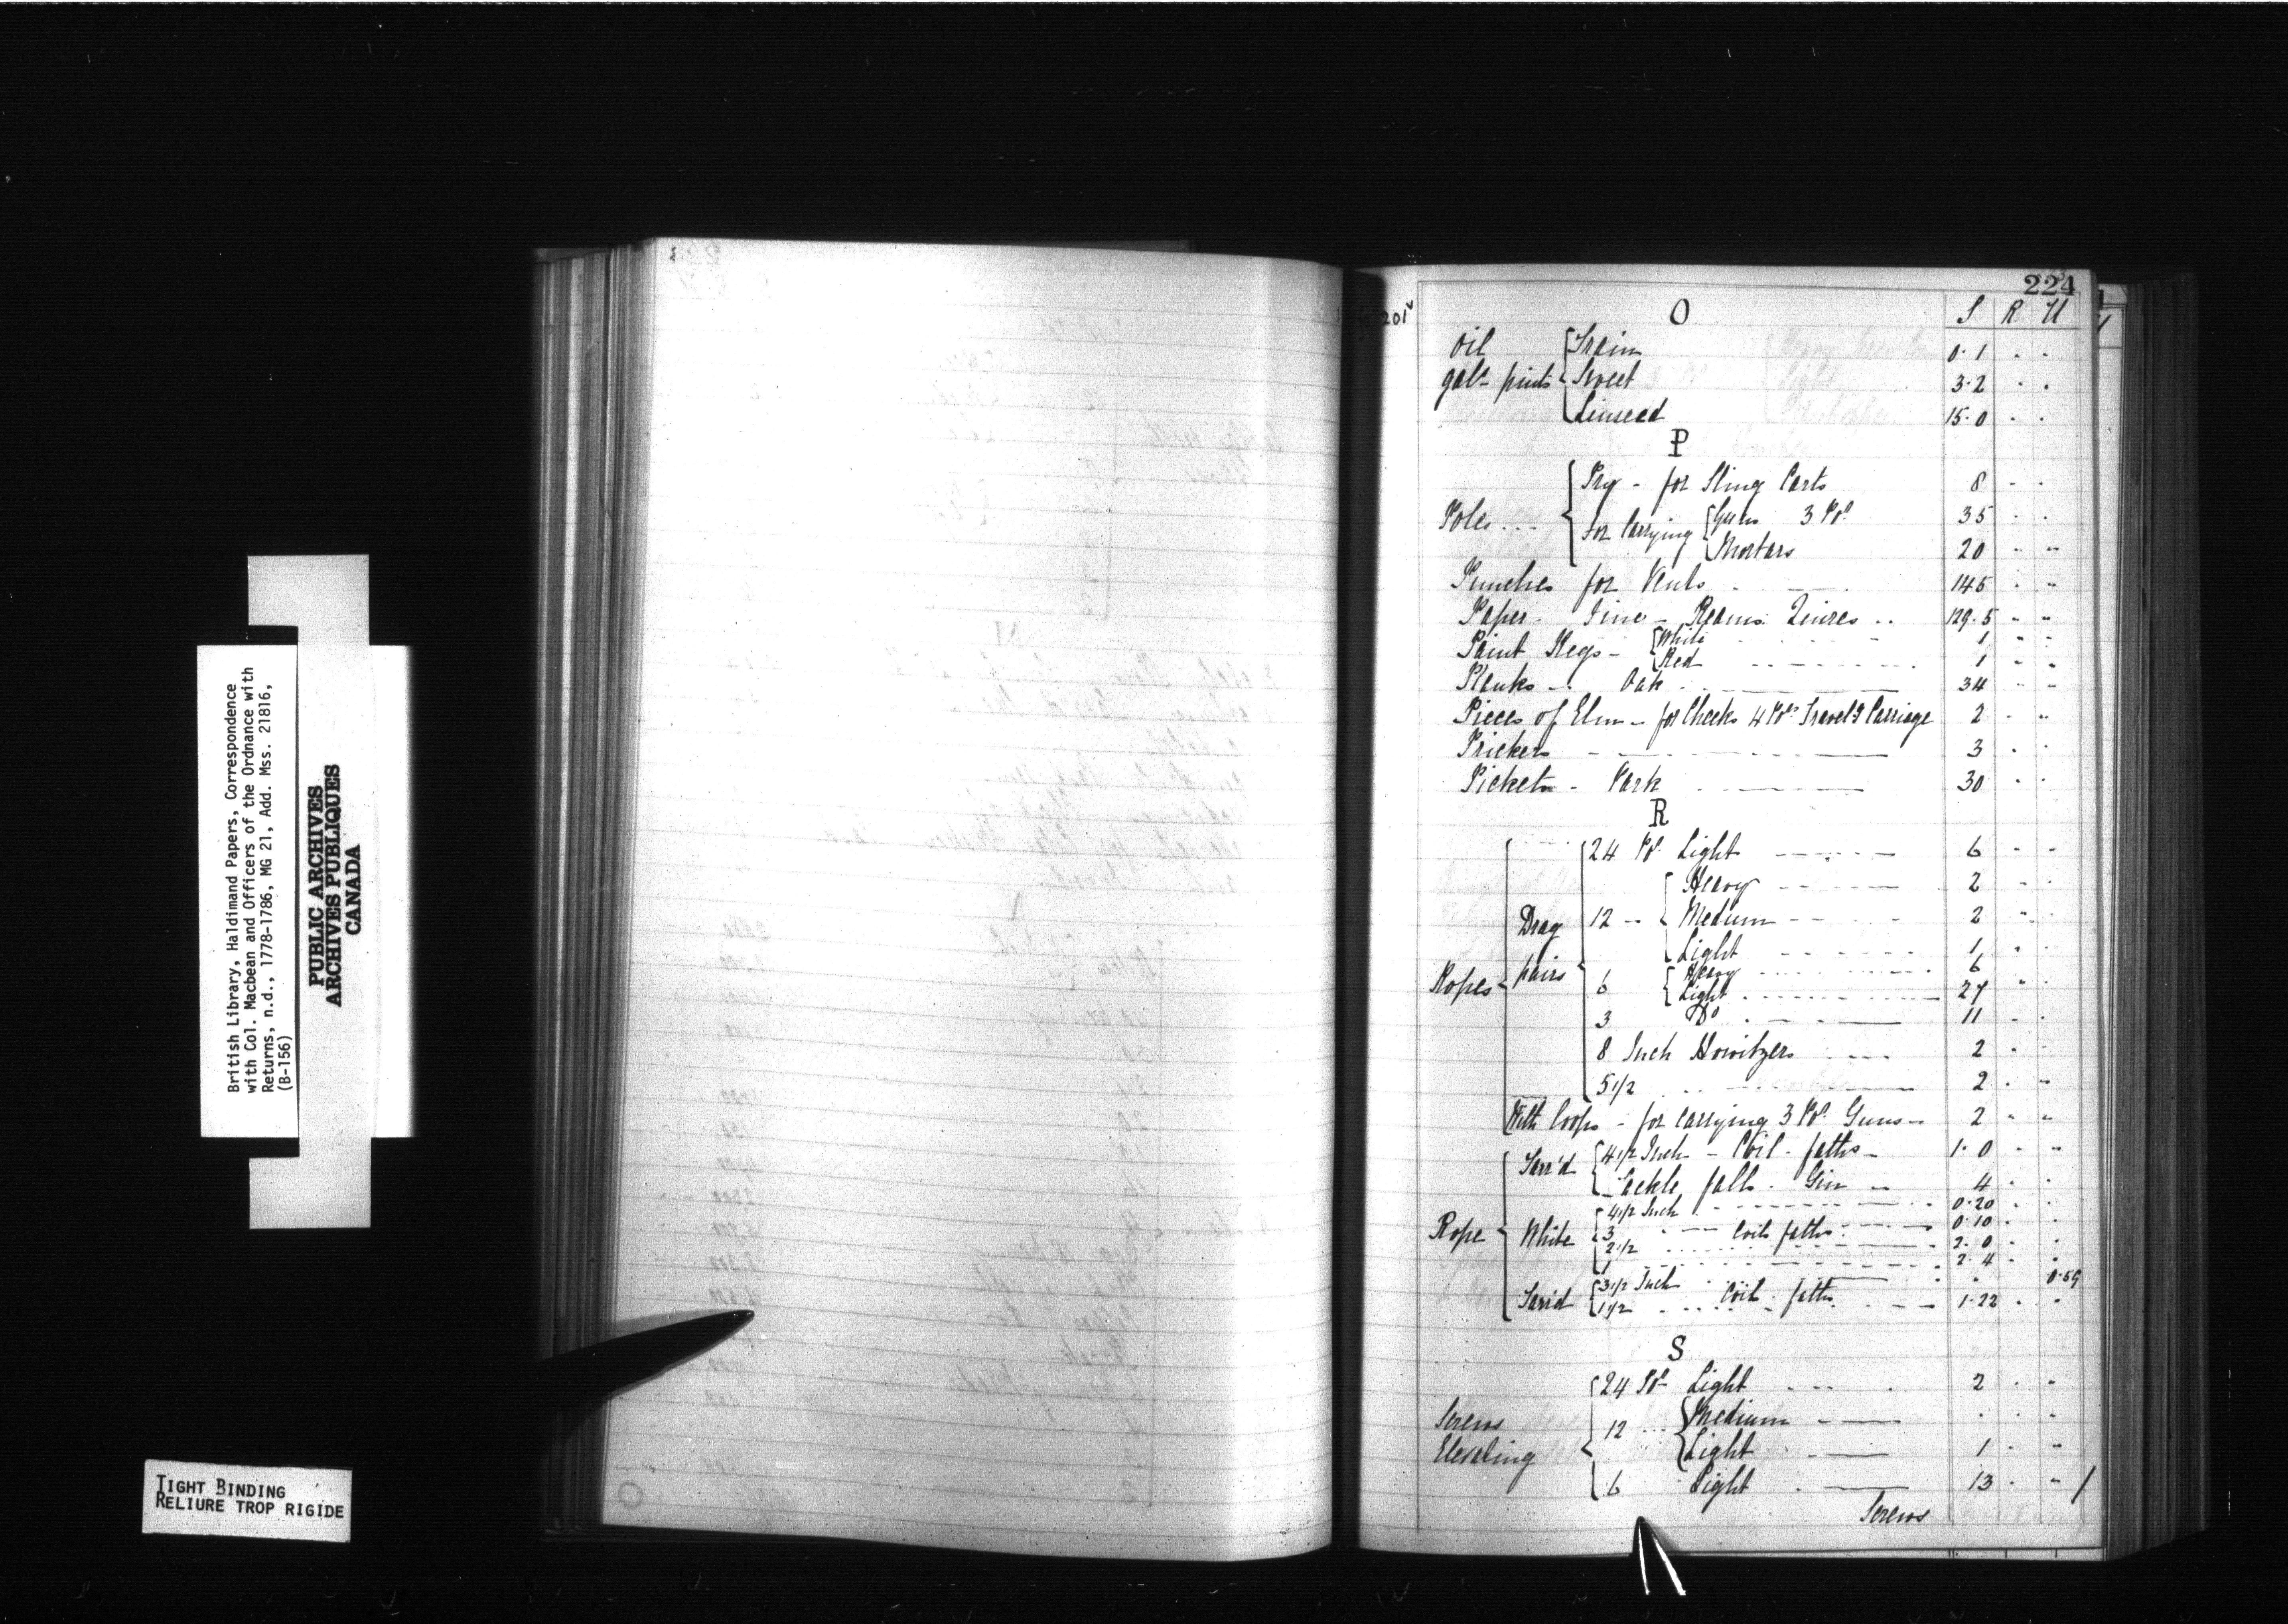 British Library, Haldimand Papers, Correspondence
with Col. Macbean and Officers of the Ordnance with
Returns, n.d., 1778-1786, MG 21, Add. Mss. 21816,
(B-156)
PUBLIC ARCHIVES
ARCHIVES PUBLIQUES
CANADA
TIGHT BINDING
RELIURE TROP RIGIDE
224
fo 201v
O S R U
Oil Train 0.1 . .
gals pints Sweet 3.2 . .
Linseed 15.0 . .
P
Pry - for Sling Carts 8 - .
Poles ... for Carrying Guns 3 Pr 35 . .
Mortars 20 - "
Punches for Vents 145 . "
Paper - Fine - Reams Quires .. 129.5 " "
Paint Kegs - White 1 " "
Red 1 " "
Planks - Oak 34 " "
Pieces of Elm - for Cheeks 4 Prs Travelg Carriage 2 . "
Prickers 3 . .
Pickets - Park 30 . .
R
24 Pr Light 6 - -
Heavy 2 - .
Drag 12 -- Medium 2 " .
Light 1 . .
Ropes pairs 6 Heavy 6
Light 27 " .
3 Do 11 . .
8 Inch Howitzers 2 . .
5 1/2 2 . "
With loops - for carrying 3 Pr Guns 2 " "
Tarr'd 4 1/2 Inch - Coil - faths - 1.0 " "
Tackle falls - Gin 4 . .
4 1/2 Inch 0.20 . .
Rope White 3 Coils faths 0.10 . .
2 1/2 2.0 . .
1 2.4 . .
Tar'd 3 1/2 Inch . . 0.59
1 1/2 Coil faths 1.22 . "
S
24 Pr Light 2 . .
Screws 12 Medium . . .
Elevating Light 1 . "
6 Light 13 . "
Screws